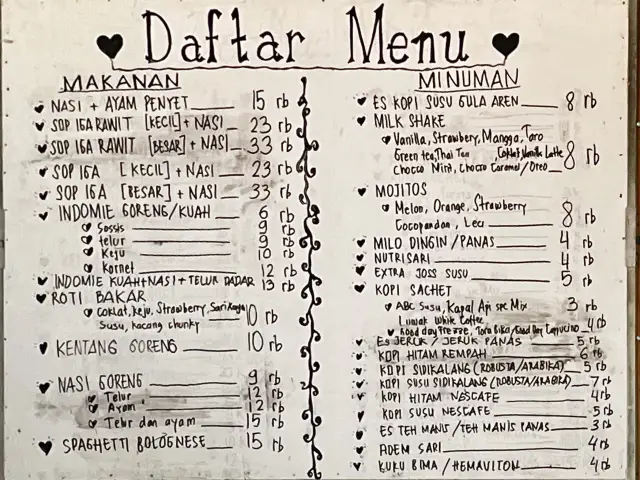 Daftar Menu
MAKANAN
NASI + AYAM PENYET 15 rb
SOP IGA RAWIT [KECIL] + NASI 23 rb
SOP IGA RAWIT [BESAR] + NASI 33 rb
SOP IGA [KECIL] + NASI 23 rb
SOP IGA [BESAR] + NASI 33 rb
INDOMIE GORENG/KUAH 6 rb
Sossis 9 rb
telur 9 rb
Keju 10 rb
Kornet 12 rb
INDOMIE KUAH+NASI+TELUR DADAR 13 rb
ROTI BAKAR
Coklat, keju, Strawberry, Sarikaya 10 rb
Susu, kacang chunky
KENTANG GORENG 10 rb
NASI GORENG 9 rb
Telur 12 rb
Ayam 12 rb
Telur dan ayam 15 rb
SPAGHETTI BOLOGNESE 15 rb
MINUMAN
ES KOPI SUSU GULA AREN 8 rb
MILK SHAKE
Vanilla, Strawbery, Mangga, Taro
Green tea, Thai Tea Coklat, Vanilla Latte 8 rb
Choco Mint, Choco Caramel/Oreo
MOJITOS
Melon, Orange, Strawberry
Cocopandan, Leci 8 rb
MILO DINGIN/PANAS 4 rb
NUTRISARI 4 rb
EXTRA JOSS SUSU 5 rb
KOPI SACHET
ABC Susu, Kapal Api spc Mix 3 rb
Luwak White Coffee
Good day Freeze, Tora Bika/Good Day Cappucino 4 rb
ES JERUK / JERUK PANAS 5 rb
KOPI HITAM REMPAH 6 rb
KOPI SIDIKALANG (ROBUSTA/ARABIKA) 5 rb
KOPI SUSU SIDIKALANG (ROBUSTA/ARABIKA) 7 rb
KOPI HITAM NESCAFE 4 rb
KOPI SUSU NESCAFE 5 rb
ES TEH MANIS / TEH MANIS PANAS 3 rb
ADEM SARI 4 rb
KUKU BIMA / HEMAVITON 4 rb